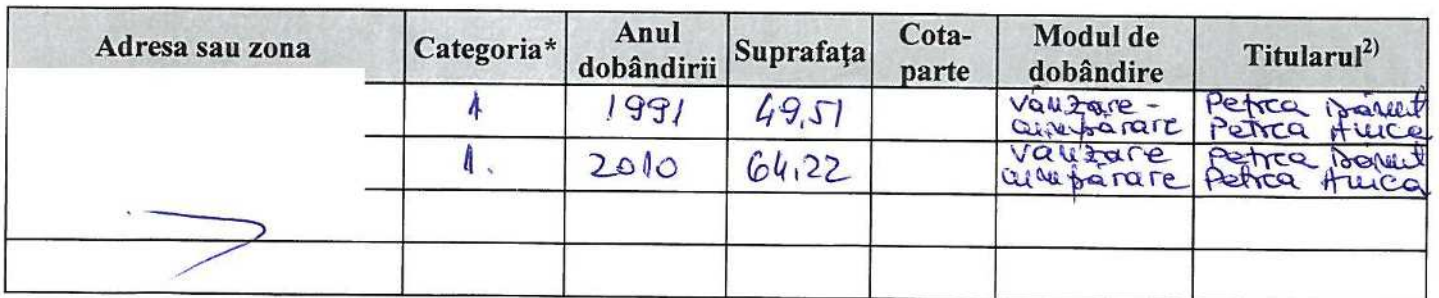 Adresa sau zona Categoria* Anul dobândirii Suprafaţa Cota-parte Modul de dobândire Titularul2)
1 1991 49,51 vânzare - cumpărare Petrea Dănuț Petrea Anica
1. 2010 64,22 vânzare cumpărare Petrea Dănuț Petrea Anica